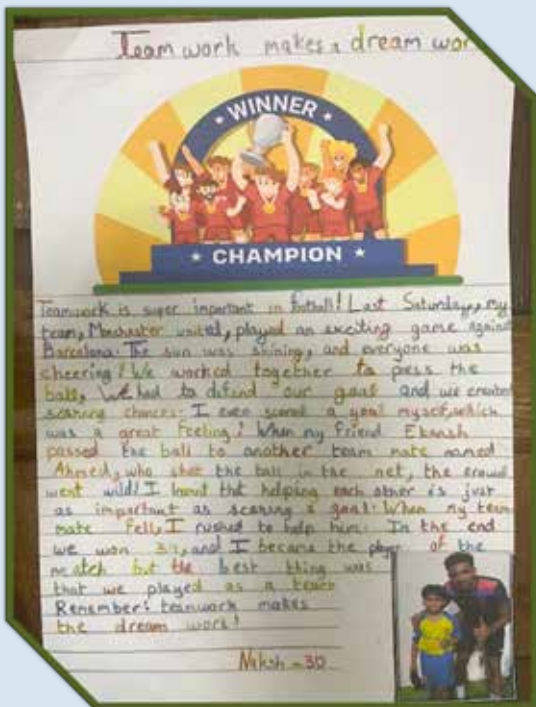 Teamwork makes a dream wor
WINNER
CHAMPION
Teamwork is super important in football! Last Saturday, my
team, Manchester united, played an exciting game against
Barcelona. The sun was shining, and everyone was
cheering! We worked together to press the
ball, We had to difend our goal and we created
scoring chances. I even scored a goal myself, which
was a great feeling! When my friend Ekansh
passed the ball to another team mate named
Ahmed, who shot the ball in the net, the crowd
went wild! I learnt tht helping each other is just
as important as scoring a goal. When my team
mate fell, I rushed to help him. In the end
we won 3-1, and I became the player of the
match but the best thing was
that we played as a team
Remember: teamwork makes
the dream work!
Niksh - 3D